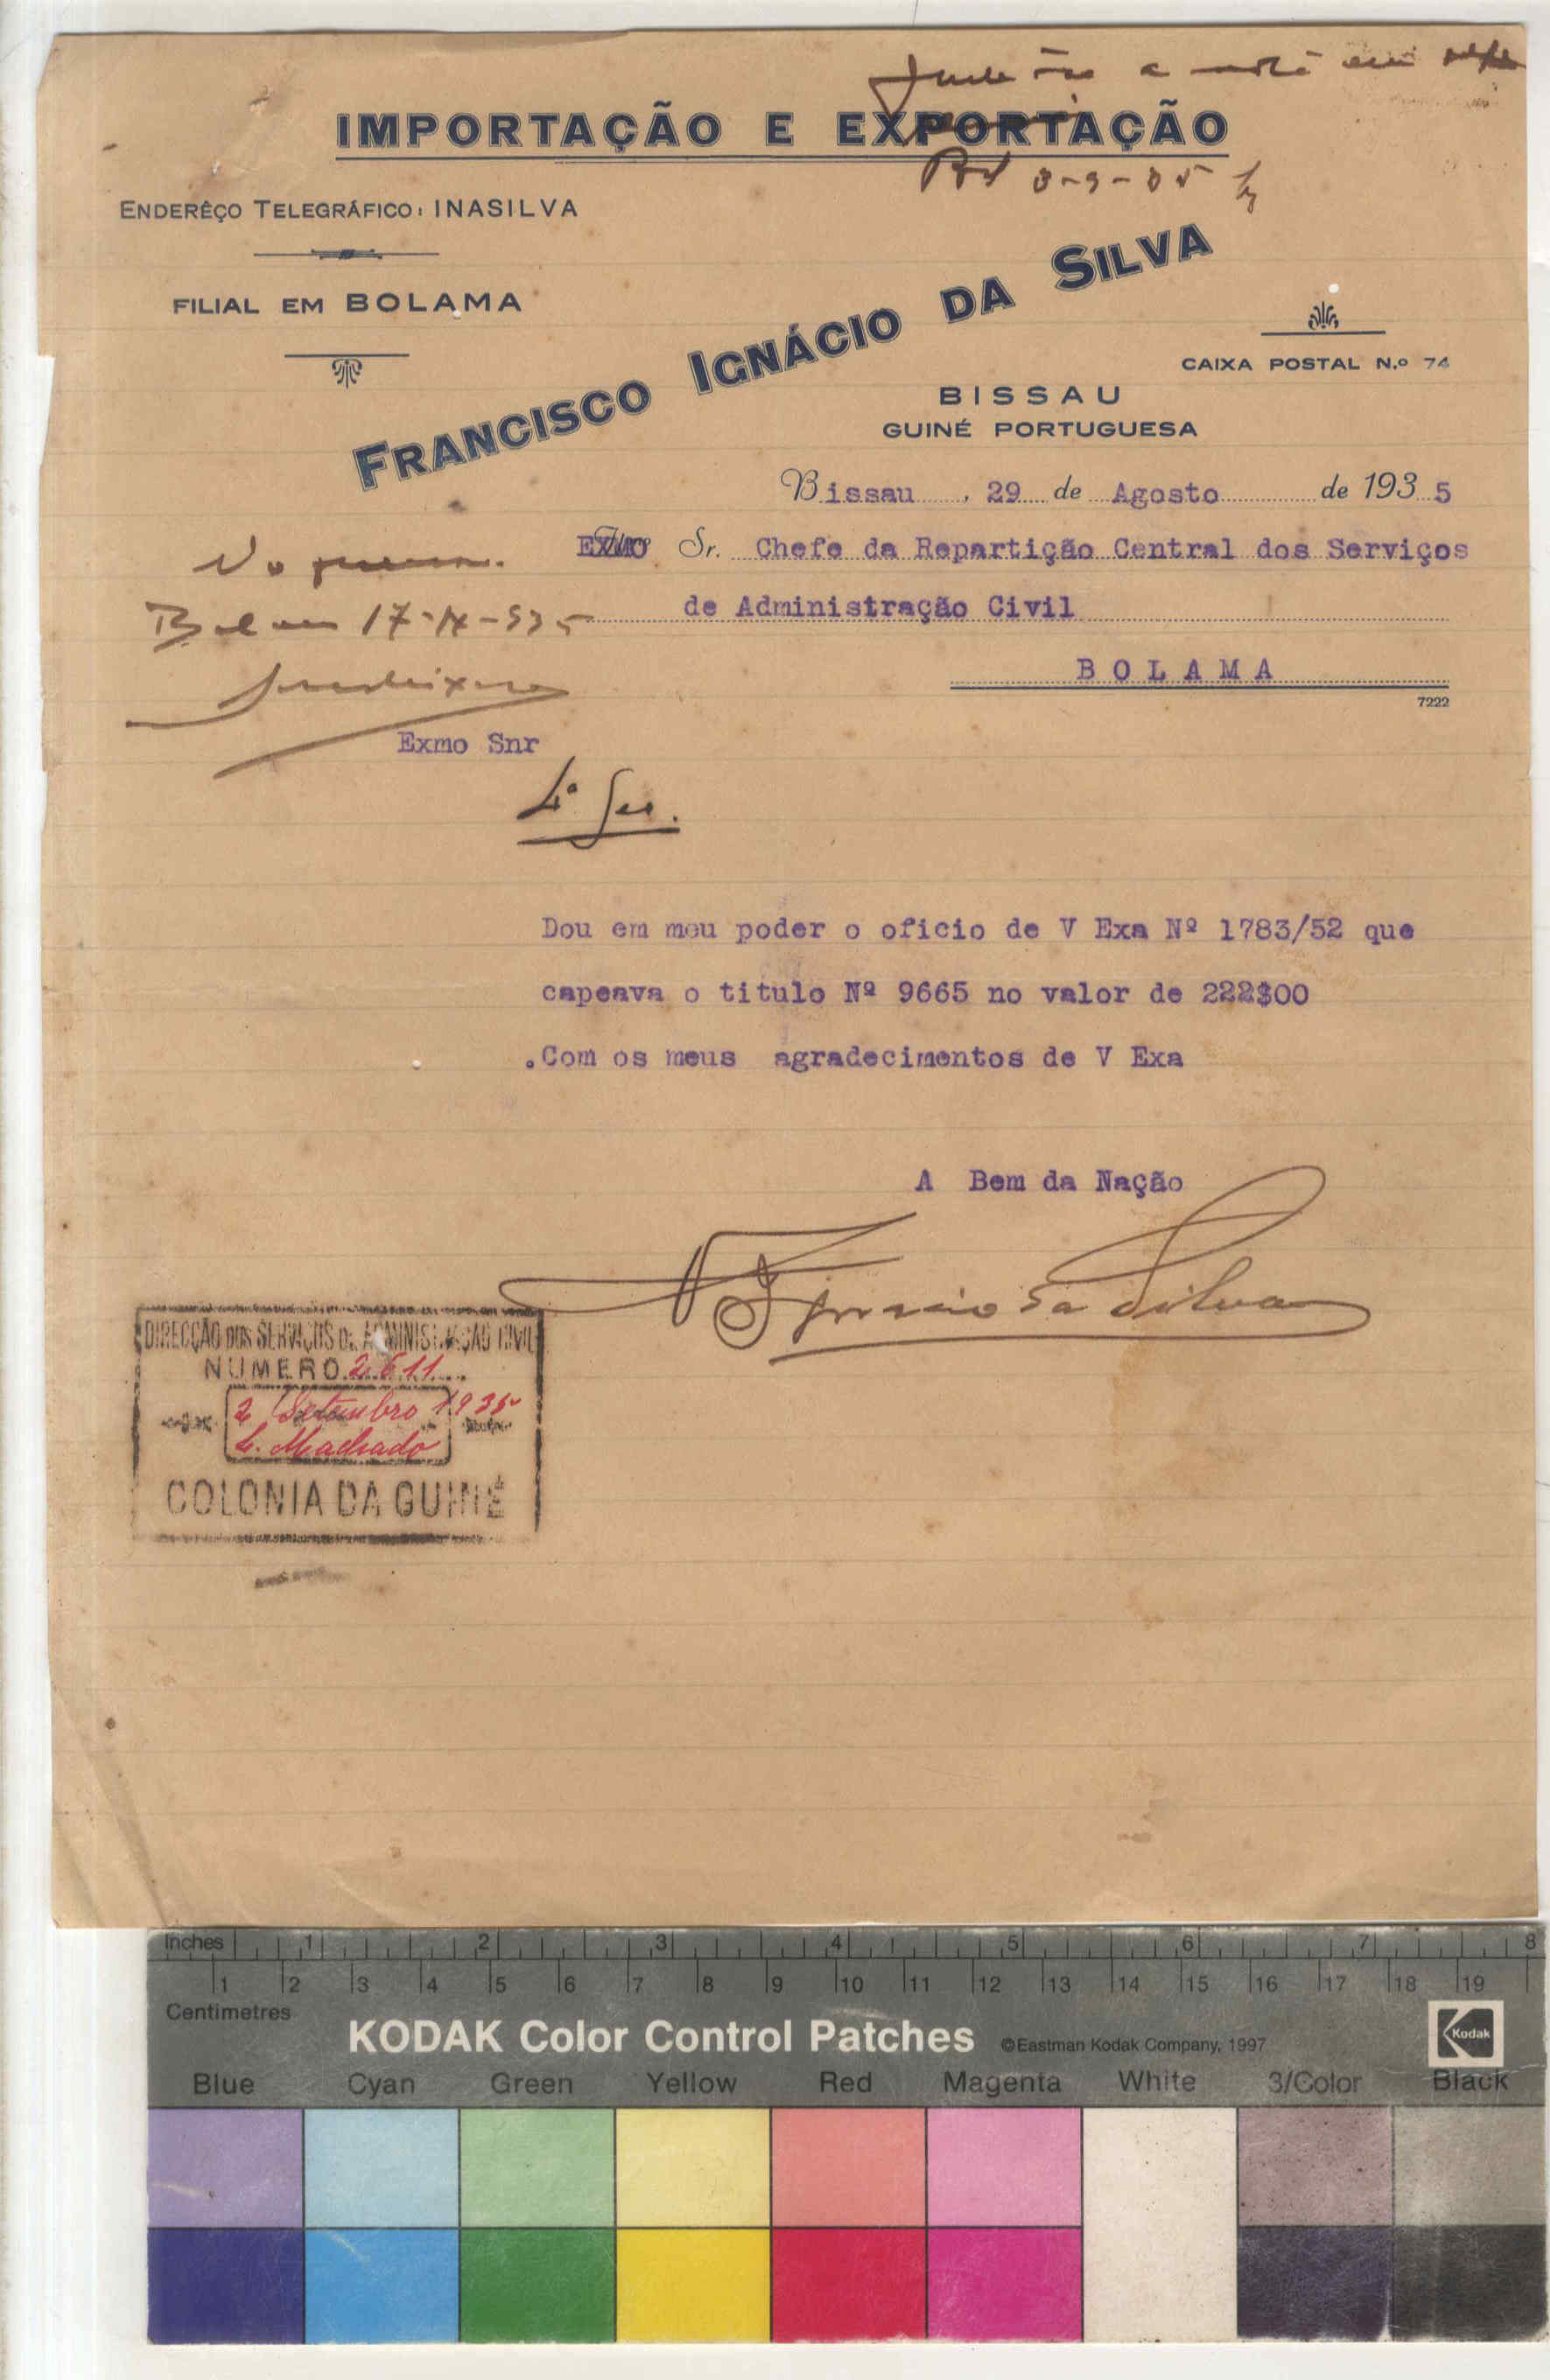 IMPORTAÇÃO E EXPORTAÇÃO
ENDERÊÇO TELEGRÁFICO: INASILVA
FILIAL EM BOLAMA
FRANCISCO IGNÁCIO DA SILVA
CAIXA POSTAL N.º 74
BISSAU
GUINÉ PORTUGUESA
Bissau, 29 de Agosto de 1935
EXMO Sr. Chefe da Repartição Central dos Serviços
de Administração Civil
BOLAMA
7222
17-IX-935
Exmo Snr
Dou em meu poder o oficio de V Exa Nº 1783/52 que
capeava o titulo Nº 9665 no valor de 222$00
.Com os meus agradecimentos de V Exa
A Bem da Nação
Ignacio da Silva
DIRECÇÃO DOS SERVIÇOS DE ADMINISTRAÇÃO CIVIL
NUMERO 2611
2 Setembro 1935
L. Machado
COLONIA DA GUINÉ
Inches 1 2 3 4 5 6 7 8
1 2 3 4 5 6 7 8 9 10 11 12 13 14 15 16 17 18 19
Centimetres
KODAK Color Control Patches ©Eastman Kodak Company, 1997 Kodak
Blue Cyan Green Yellow Red Magenta White 3/Color Black